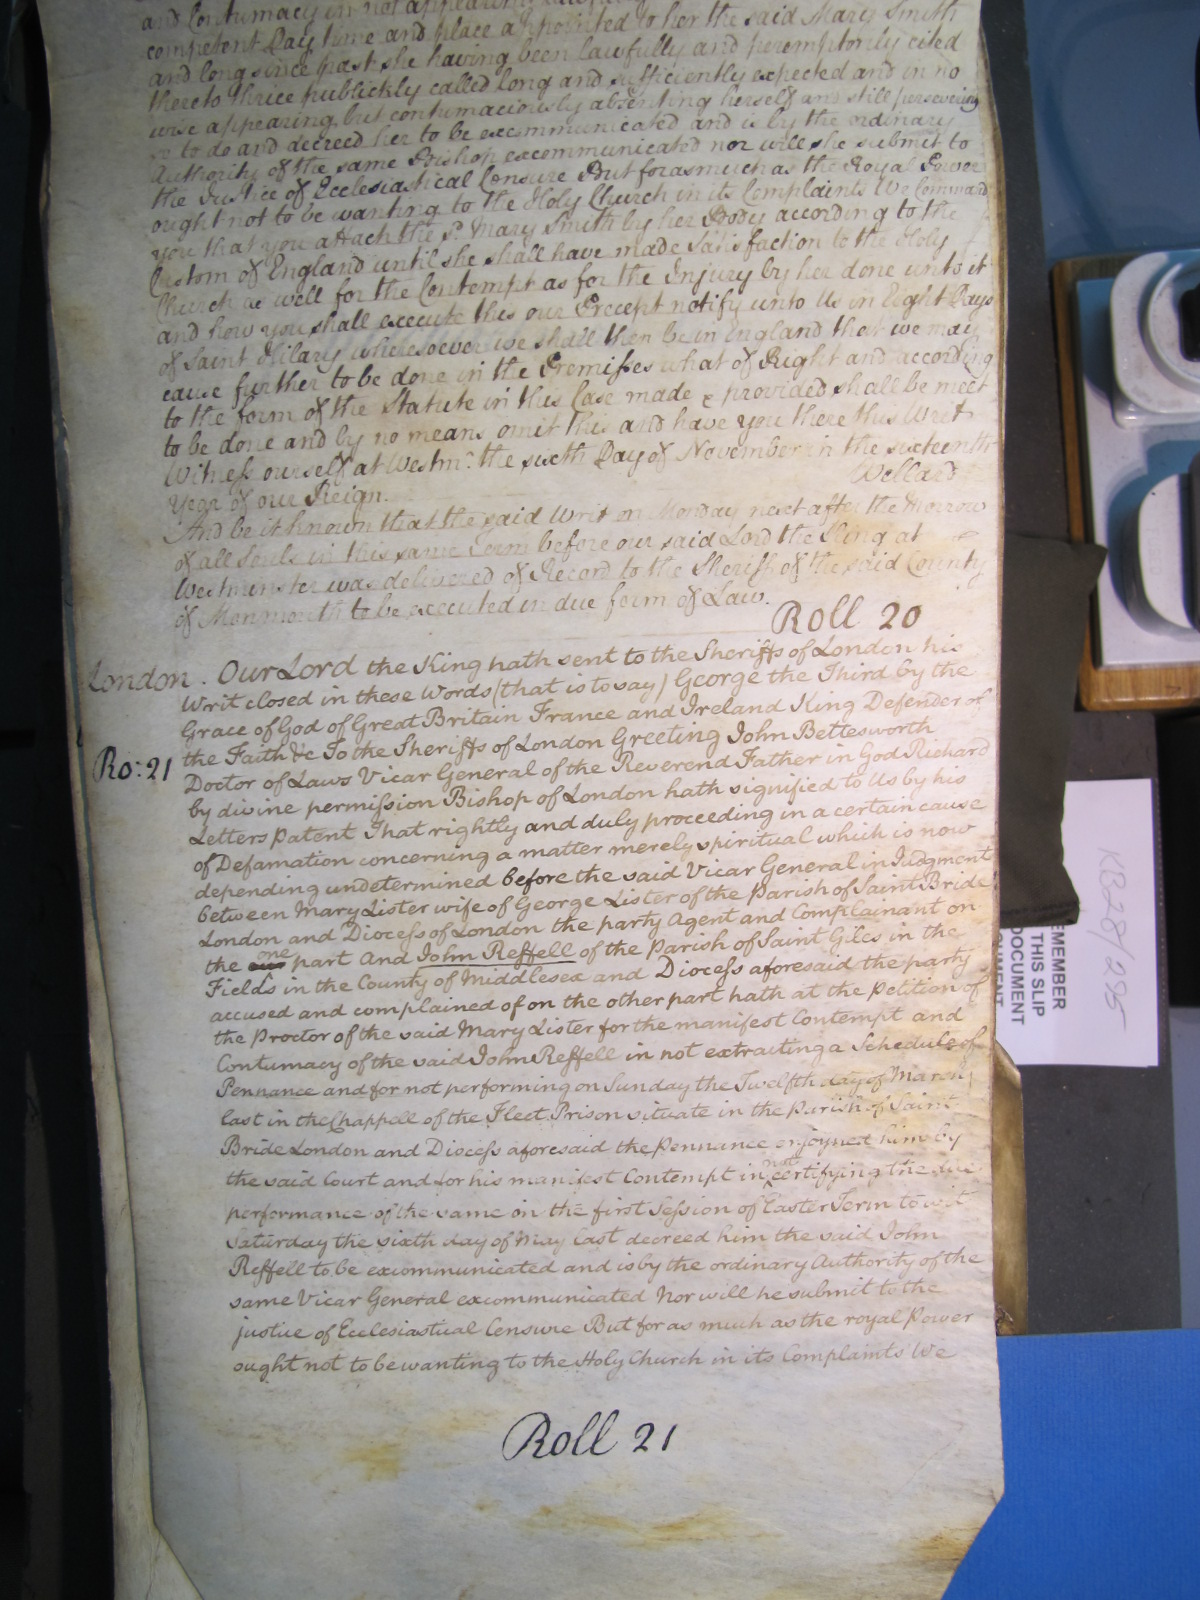 and Contumacy in not appearing
competent Day time and place appointed to her the said Mary Smith
and long since past she having been lawfully and peremptorily cited
thereto thrice publickly called long and sufficiently expected and in no
wise appearing but contumaciously absenting herself and still persevering
so to do and decreed her to be excommunicated and is by the ordinary
Authority of the same Bishop excommunicated nor will she submit to
the Justice of Ecclesiastical Censure But forasmuch as the Royal Power
ought not to be wanting to the Holy Church in its Complaints We Command
you that you attach the sd. Mary Smith by her Body according to the
Custom of England until she shall have made Satisfaction to the Holy
Church as well for the Contempt as for the Injury by her done unto it
and how you shall execute this our Precept notify unto Us in Eight Days
of Saint Hilary wheresoever we shall then be in England that we may
cause further to be done in the Premisses what of Right and according
to the form of the Statute in this Case made & provided shall be meet
to be done and by no means omit this and have you there this Writ
Witness ourself at Westmr. the sixth Day of November in the sixteenth
Year of our Reign. Willard
And be it known that the said Writ on Monday next after the Morrow
of all Souls in this same Term before our said Lord the King at
Westminster was delivered of Record to the Sheriff of the said County
of Monmouth to be executed in due form of Law.
Roll 20
London. Our Lord the King hath sent to the Sheriffs of London his
Writ closed in these Words (that is to say) George the Third by the
Grace of God of Great Britain France and Ireland King Defender of
the Faith &c To the Sheriffs of London Greeting John Bettesworth
Ro: 21
Doctor of Laws Vicar General of the Reverend Father in God Richard
by divine permission Bishop of London hath signified to Us by his
Letters Patent That rightly and duly proceeding in a certain cause
of Defamation concerning a matter merely spiritual which is now
depending undetermined before the said Vicar General in Judgment
between Mary Lister wife of George Lister of the Parish of Saint Bride
London and Diocess of London the party Agent and Complainant on
the one part And John Reffell of the Parish of Saint Giles in the
Fields in the County of Middlesex and Diocess aforesaid the party
accused and complained of on the other part hath at the Petition of
the Proctor of the said Mary Lister for the manifest Contempt and
Contumacy of the said John Reffell in not extracting a Schedule of
Pennance and for not performing on Sunday the Twelfth day of March
last in the Chappell of the Fleet Prison situate in the Parish of Saint
Bride London and Diocess aforesaid the Pennance enjoyned him by
the said Court and for his manifest Contempt in not certifying the due
performance of the same on the first Session of Easter Term to wit
Saturday the sixth day of May last decreed him the said John
Reffell to be excommunicated and is by the ordinary Authority of the
same Vicar General excommunicated Nor will he submit to the
justice of Ecclesiastical Censure But for as much as the royal Power
ought not to be wanting to the Holy Church in its Complaints We
Roll 21
KB28/295
EMEMBER
THIS SLIP
DOCUMENT
CUMENT